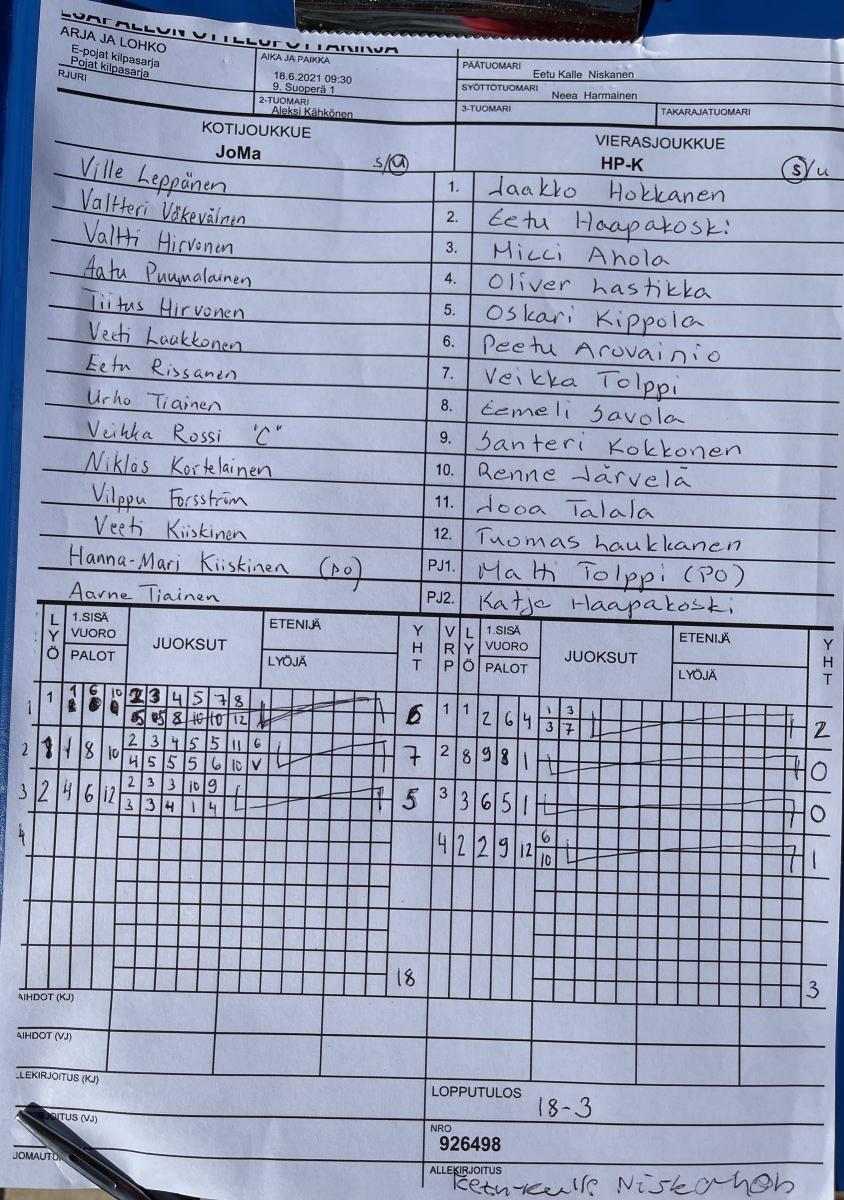 ARJA JA LOHKO
E-pojat kilpasarja
Pojat kilpasarja
RJURI
AIKA JA PAIKKA
18.6.2021 09:30
9. Suoperä 1
2-TUOMARI
Aleksi Kähkönen
PÄÄTUOMARI
Eetu Kalle Niskanen
SYÖTTÖTUOMARI
Neea Harmainen
3-TUOMARI TAKARAJATUOMARI
KOTIJOUKKUE VIERASJOUKKUE
JoMa S/U HP-K S/U
Ville Leppänen 1. Jaakko Hokkanen
Valtteri Väkeväinen 2. Eetu Haapakoski
Valtti Hirvonen 3. Micci Ahola
Aatu Puumalainen 4. Oliver Lastikka
Tiitus Hirvonen 5. Oskari Kippola
Veeti Laakkonen 6. Peetu Arovainio
Eetu Rissanen 7. Veikka Tolppi
Urho Tiainen 8. Eemeli Savola
Veikka Rossi "C" 9. Santeri Kokkonen
Niklas Kortelainen 10. Renne Järvelä
Vilppu Forsström 11. Jooa Talala
Veeti Kiiskinen 12. Tuomas Laukkanen
Hanna-Mari Kiiskinen (PO) PJ1. Matti Tolppi (PO)
Aarne Tiainen PJ2. Katja Haapakoski
LYÖ 1.SISÄ VUORO PALOT JUOKSUT ETENIJÄ LYÖJÄ YHT VRP LYÖ 1.SISÄ VUORO PALOT JUOKSUT ETENIJÄ LYÖJÄ YHT
1 1 6 10 2 3 4 5 7 8 6 1 1 2 6 4 1 3 2
8 10 10 12 3 7
2 1 8 10 2 3 4 5 5 11 6 7 2 8 9 8 1 0
4 5 5 5 6 10 V
3 2 4 6 12 2 3 3 10 9 5 3 3 6 5 1 0
3 3 4 1 4
4 4 2 2 9 12 6 1
10
18 3
AIHDOT (KJ)
AIHDOT (VJ)
LLEKIRJOITUS (KJ)
LOPPUTULOS 18-3
OITUS (VJ)
NRO
926498
JOMAUTU
ALLEKIRJOITUS
Eetu-Kalle Niskanen